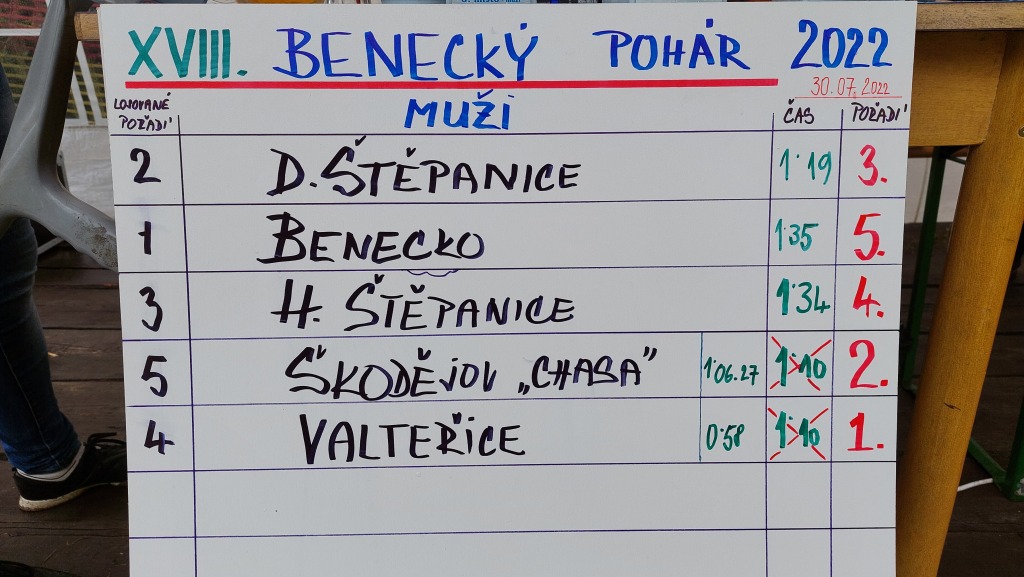 XVIII. BENECKÝ POHÁR 2022
30.07.2022
LOSOVANÉ POŘADÍ MUŽI ČAS POŘADÍ
2 D. ŠTĚPANICE 1:19 3.
1 BENECKO 1:35 5.
3 H. ŠTĚPANICE 1:34 4.
5 ŠKODĚJOV „CHASA” 1:06.27 1:10 2.
4 VALTEŘICE 0:58 1:10 1.